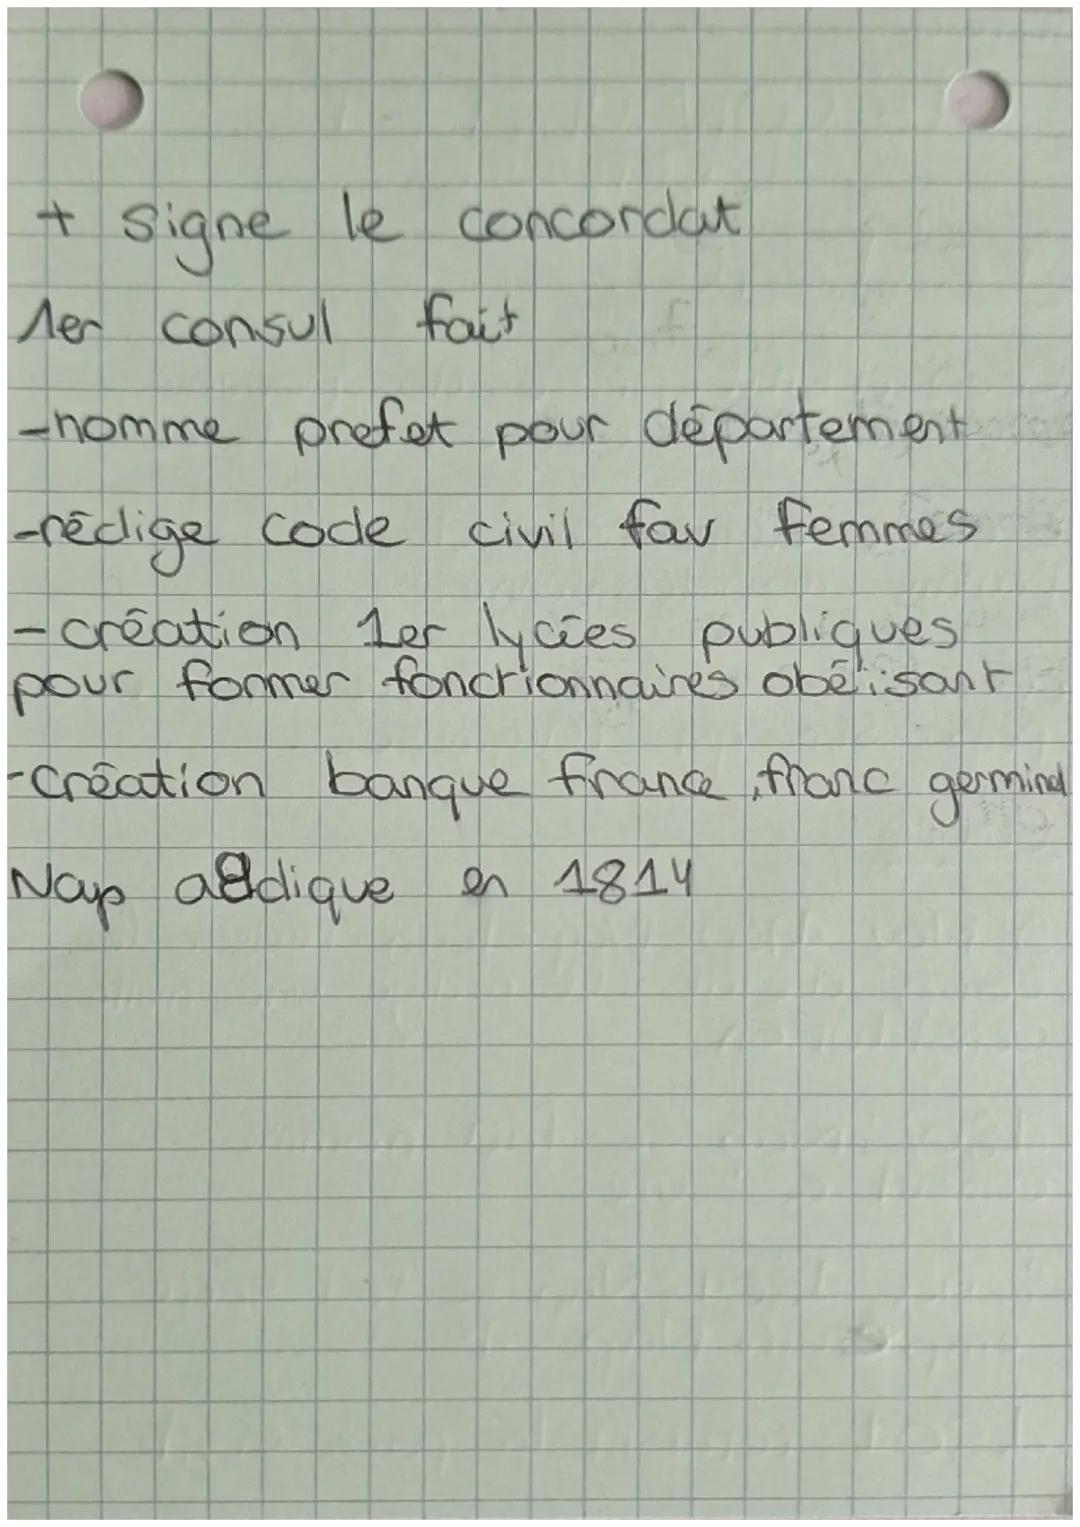 + signe le concordat
1er consul fait
-nomme prefet pour département
-rédige code civil fav femmes
-création 1er lycées publiques
pour former fonctionnaires obéisant
-création banque france, franc germinal
Nap abdique en 1814